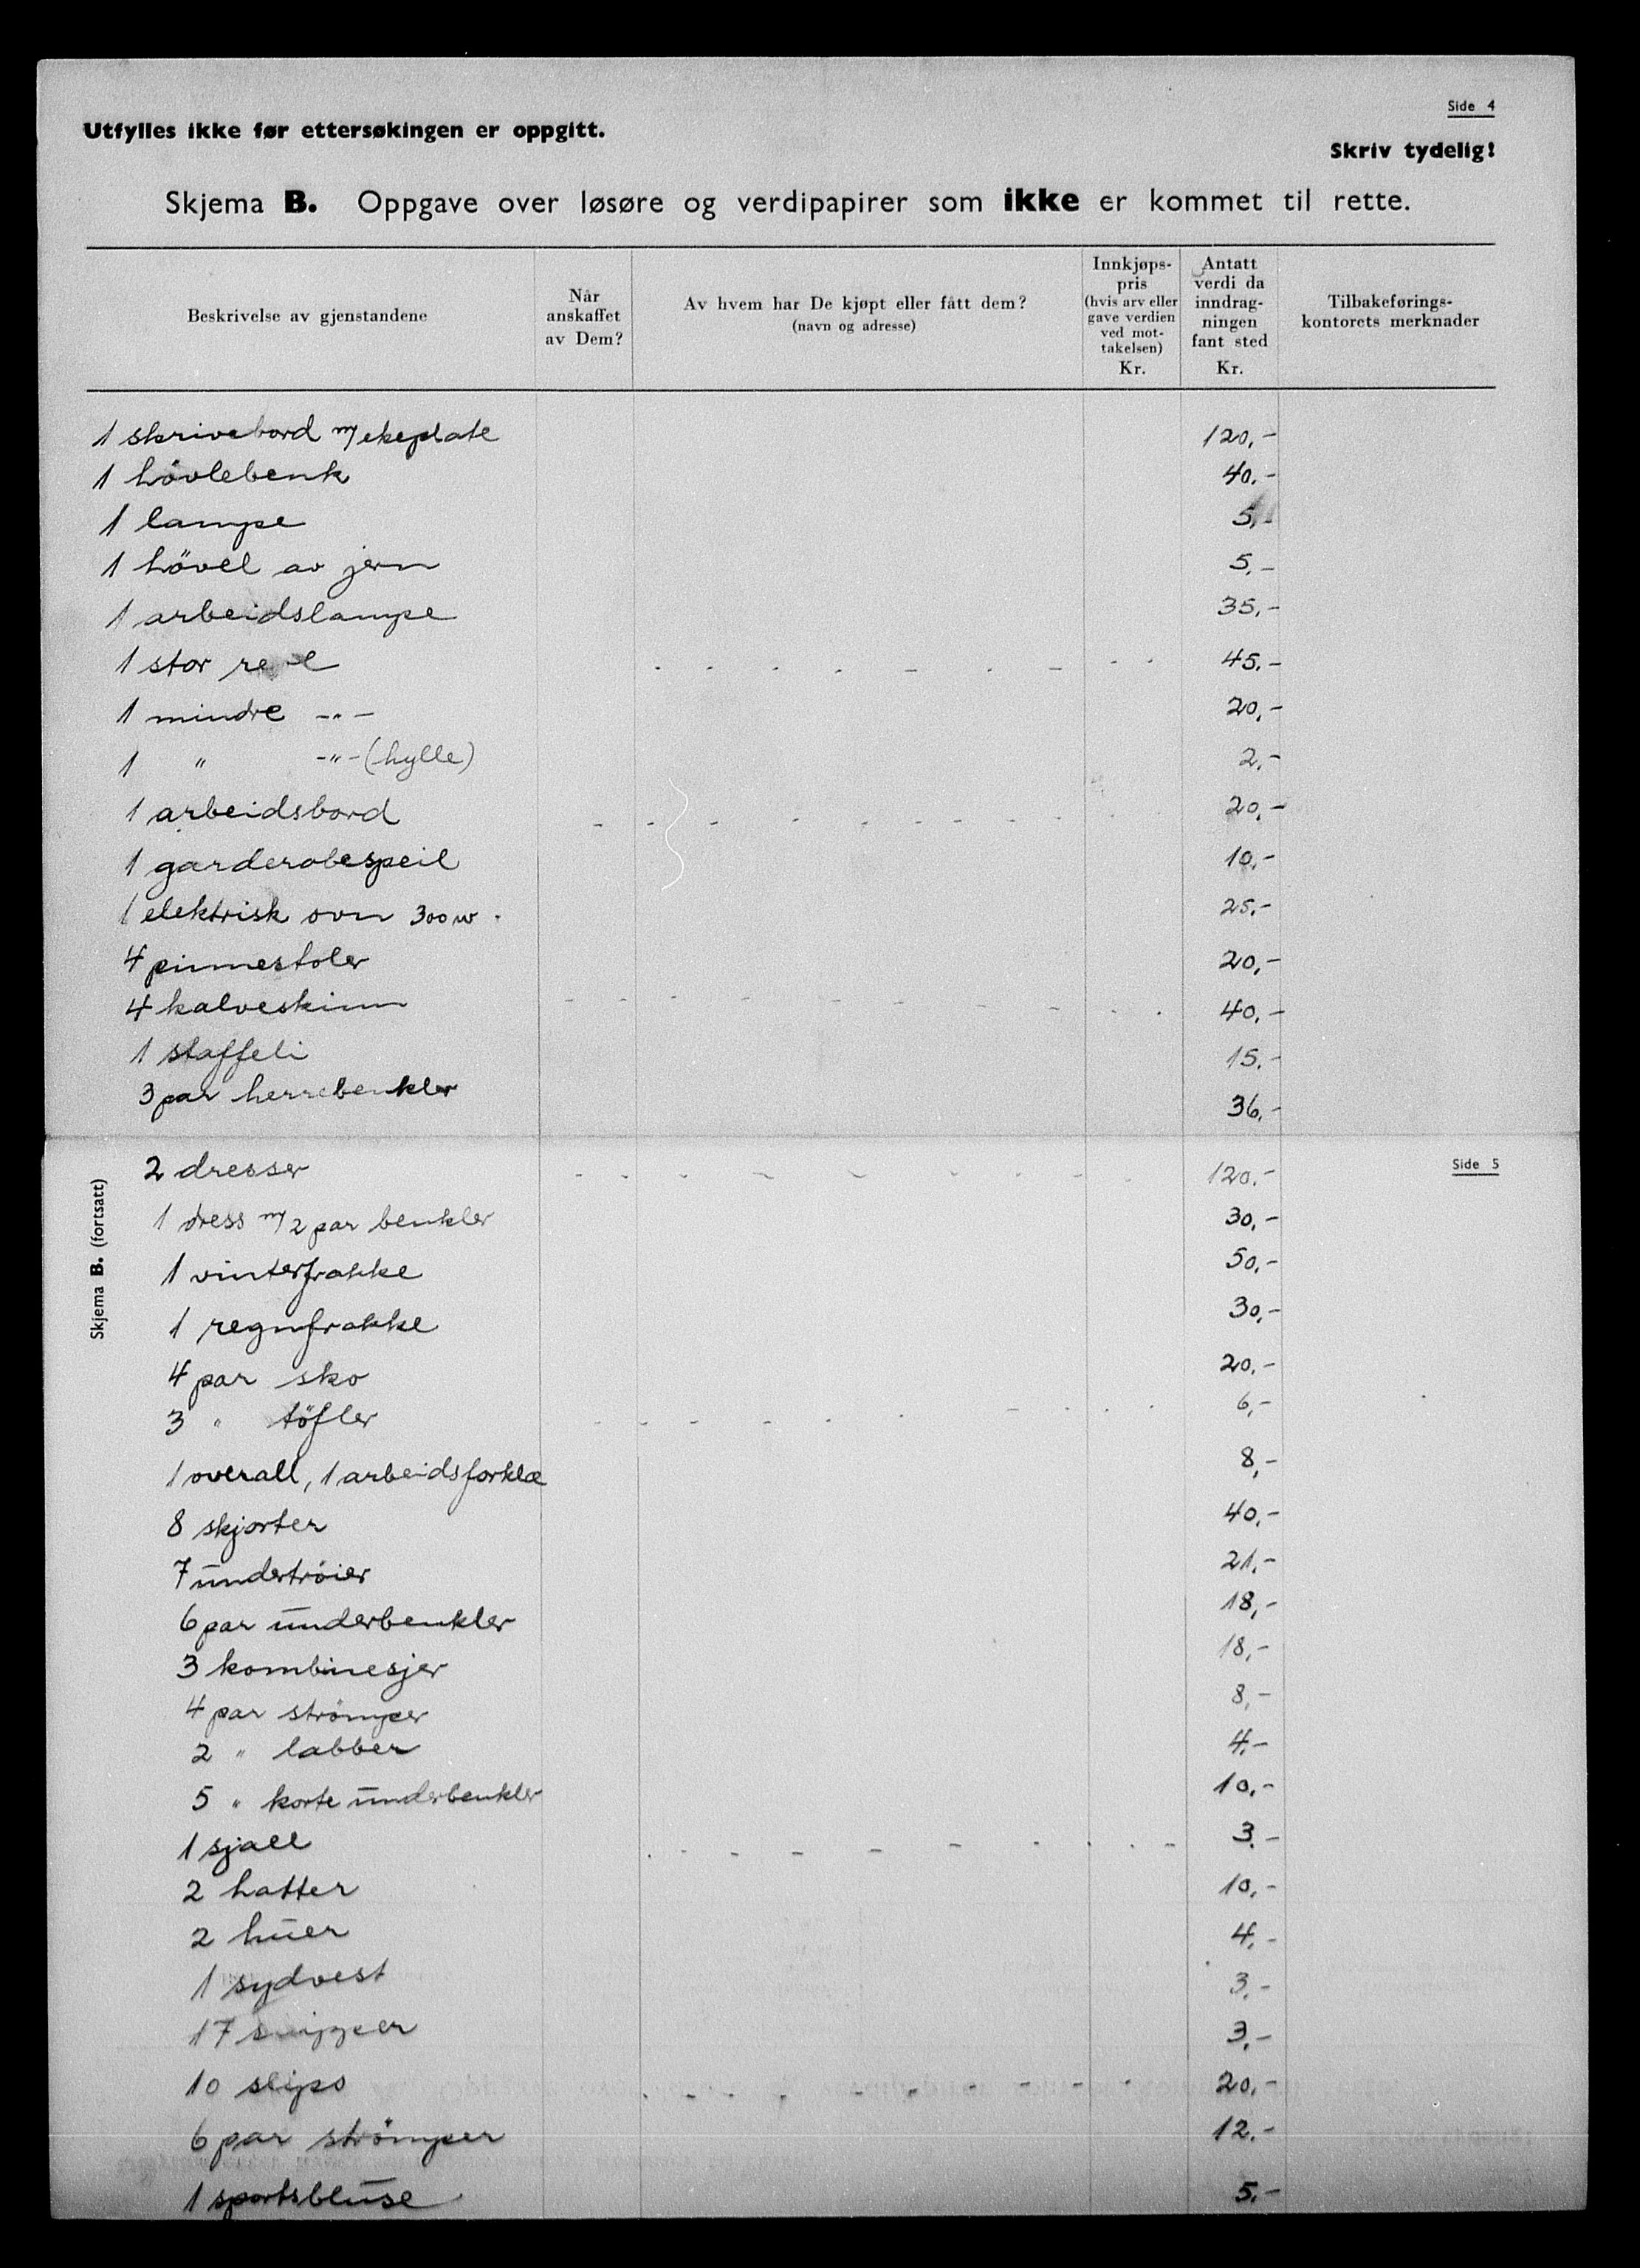 Side 4
Utfylles ikke før ettersøkingen er oppgitt.
Skriv tydelig!
Skjema B. Oppgave over løsøre og verdipapirer som ikke er kommet til rette.
Beskrivelse av gjenstandene
Når anskaffet av Dem?
Av hvem har De kjøpt eller fått dem? (navn og adresse)
Innkjøps-pris (hvis arv eller gave verdien ved mot-takelsen) Kr.
Antatt verdi da inndrag-ningen fant sted Kr.
Tilbakeførings-kontorets merknader
1 skrivebord m/ ekeplate 120,-
1 hövlebenk 40,-
1 lampe 5,-
1 hövel av jern 5,-
1 arbeidslampe 35,-
1 stor 45,-
1 mindre -"- 20,-
1 " -"- (hylle) 2,-
1 arbeidsbord 20,-
1 garderobespeil 10,-
1 elektrisk ovn 300 w. 25,-
4 pinnestoler 20,-
4 kalveskinn 40,-
1 staffeli 15,-
3 par herrebenkler 36,-
Side 5
Skjema B. (fortsatt)
2 dresser 120,-
1 dress m/ 2 par benkler 30,-
1 vinterfrakke 50,-
1 regnfrakke 30,-
4 par sko 20,-
3 " töfler 6,-
1 overall, 1 arbeidsforklæ 8,-
8 skjorter 40,-
7 undertröier 21,-
6 par underbenkler 18,-
3 kombinesjer 18,-
4 par strömper 8,-
2 " labber 4,-
5 " korte underbenkler 10,-
1 sjall 3,-
2 hatter 10,-
2 huer 4,-
1 sydvest 3,-
17 snipper 3,-
10 slips 20,-
6 par strömper 12,-
1 sportsbluse 5,-